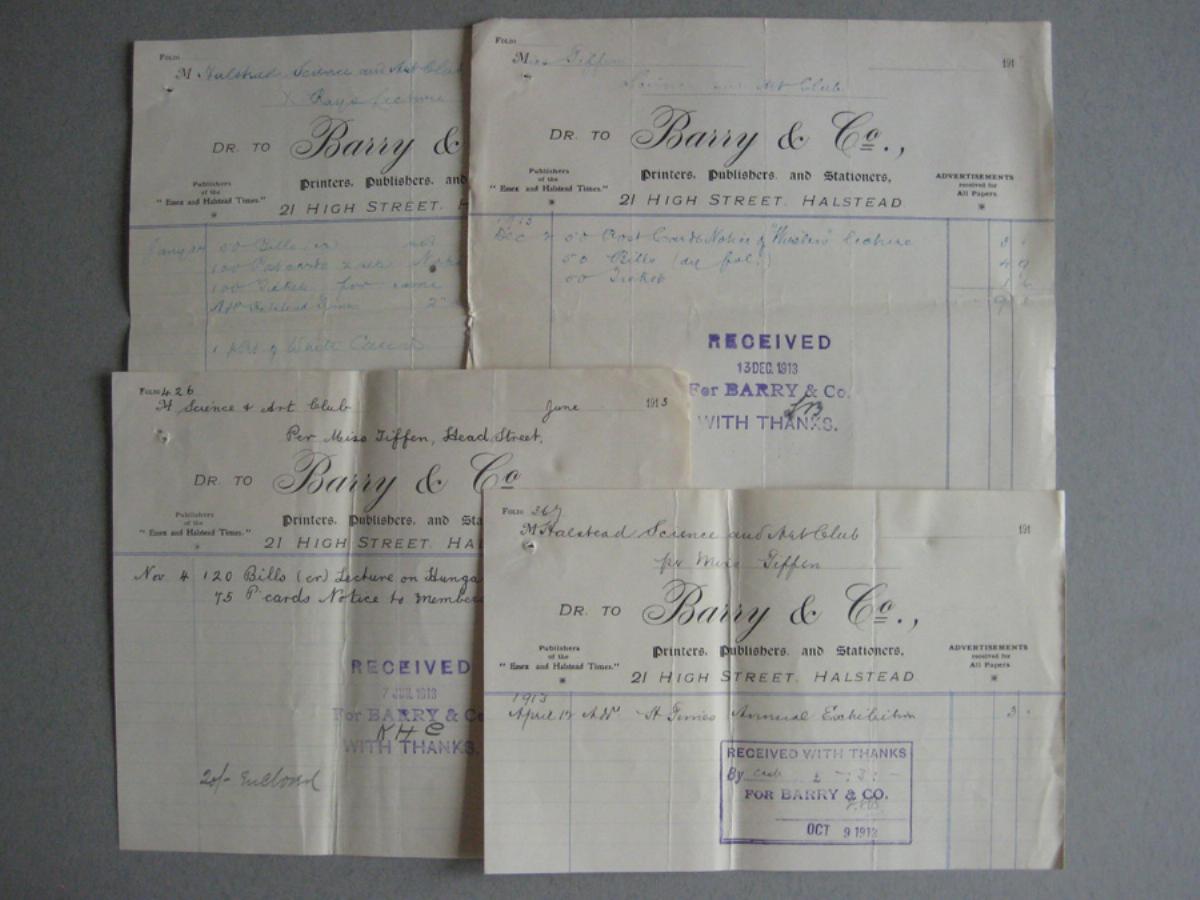 Folio
M Halstead Science and Art Club
X Rays Lecture
DR. TO Barry &
Publishers
of the
"Essex and Halstead Times."
Printers, Publishers, and
21 HIGH STREET, H
50 Bills
100 Postcards
100 Tickets for same
Adt Halstead Times 2
1 pkt of White Card
Folio
Miss Tiffen 191
Science and Art Club
DR. TO Barry & Co.,
Publishers
of the
"Essex and Halstead Times."
Printers, Publishers, and Stationers,
21 HIGH STREET, HALSTEAD
ADVERTISEMENTS
received for
All Papers
1913
Dec 50 Post Cards Notice of lecture
50 Bills
Tickets
RECEIVED
13 DEC. 1913
For BARRY & Co.
WITH THANKS.
Folio 426
M Science & Art Club June 1913
Per Miss Tiffen, Head Street,
DR. TO Barry & Co
Publishers
of the
"Essex and Halstead Times."
Printers, Publishers, and Sta
21 HIGH STREET HAL
Nov 4 120 Bills (cr) Lecture on Hunga
75 P cards Notice to Member
RECEIVED
7 JUL 1913
For BARRY & Co
WITH THANKS.
20/- Enclosed
Folio 367
M Halstead Science and Art Club 191
pr Miss Tiffen
DR. TO Barry & Co.,
Publishers
of the
"Essex and Halstead Times."
Printers, Publishers, and Stationers,
21 HIGH STREET, HALSTEAD
ADVERTISEMENTS
received for
All Papers
1913
April 12 Adt Annual Exhibition 3
RECEIVED WITH THANKS
By cash £ - : 3 : -
FOR BARRY & CO.
OCT 9 1913